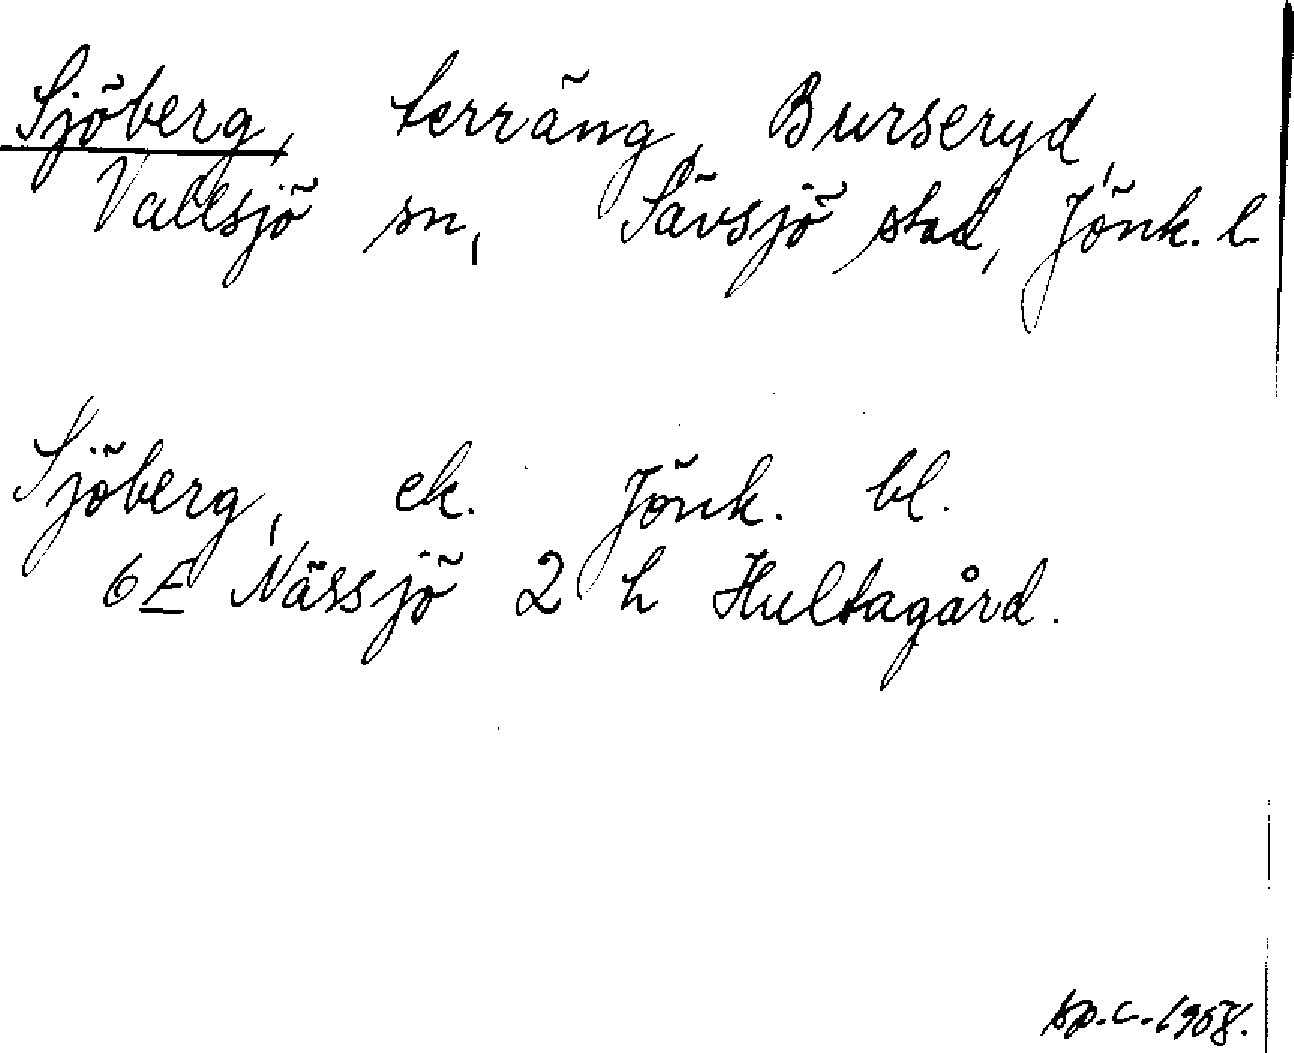 Sjöberg, terräng, Burseryd,
Vallsjö sn, Sävsjö stad, Jönk. l.
Sjöberg, ek. Jönk. bl.
6E Nässjö 2 h Hultagård.
Sp.C. 1958.